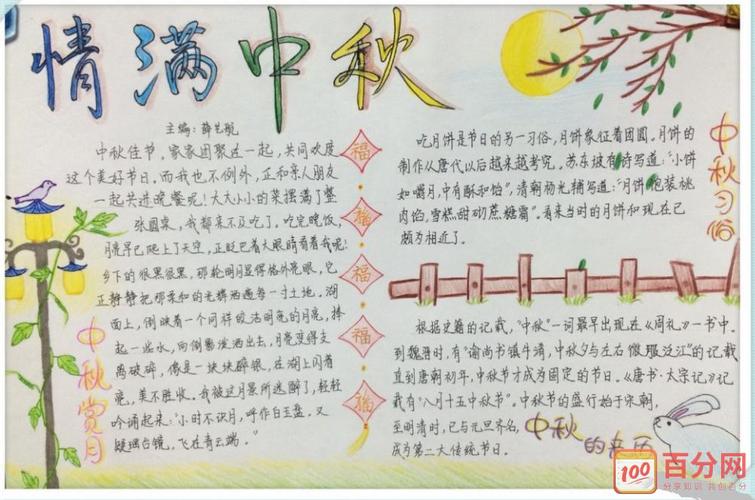 情满中秋
主编：薛艺航
中秋佳节。家家团聚在一起，共同欢度
这个美好节日，而我也不例外，正和亲人朋友
一起共进晚餐呢！大大小小的菜摆满了整
张圆桌，我都来不及吃了。吃完晚饭，
月亮早已爬上了天空，正眨巴着大眼睛看着我呢！
乡下的狠黑狠黑，那轮明月显得格外亮眼，它
正静静把那柔和的光辉洒遍每一寸土地。湖
面上，倒映着一个同样皎洁明亮的月亮，捧
起一些水，向倒影泼洒出去，月亮变得支
离破碎，像是一块块碎银，在湖上闪着
亮，美不胜收。我被这月景所迷醉了，轻轻
吟诵起来：“小时不识月，呼作白玉盘。又
疑瑶台镜，飞在青云端。”
中秋赏月
福
福
福
福
福
吃月饼是节日的另一习俗，月饼象征着团圆。月饼的
制作从唐代以后越来越考究。苏东坡有诗写道：“小饼
如嚼月，中有酥和饴”，清朝杨光辅写道：“月饼包装桃
肉馅，雪糕甜砌蔗糖霜”。看来当时的月饼和现在已
颇为相近了。
中秋习俗
根据史籍的记载，“中秋”一词最早出现在《周礼》一书中。
到魏晋时，有“谕尚书镇牛渚，中秋夕与左右微服泛江”的记载
直到唐朝初年，中秋节才成为固定的节日。《唐书·太宗记》记
载有“八月十五中秋节”。中秋节的盛行始于宋朝，
至明清时，已与元旦齐名，
成为第二大传统节日。
中秋的来历
100
百分网
分享知识 共创百分